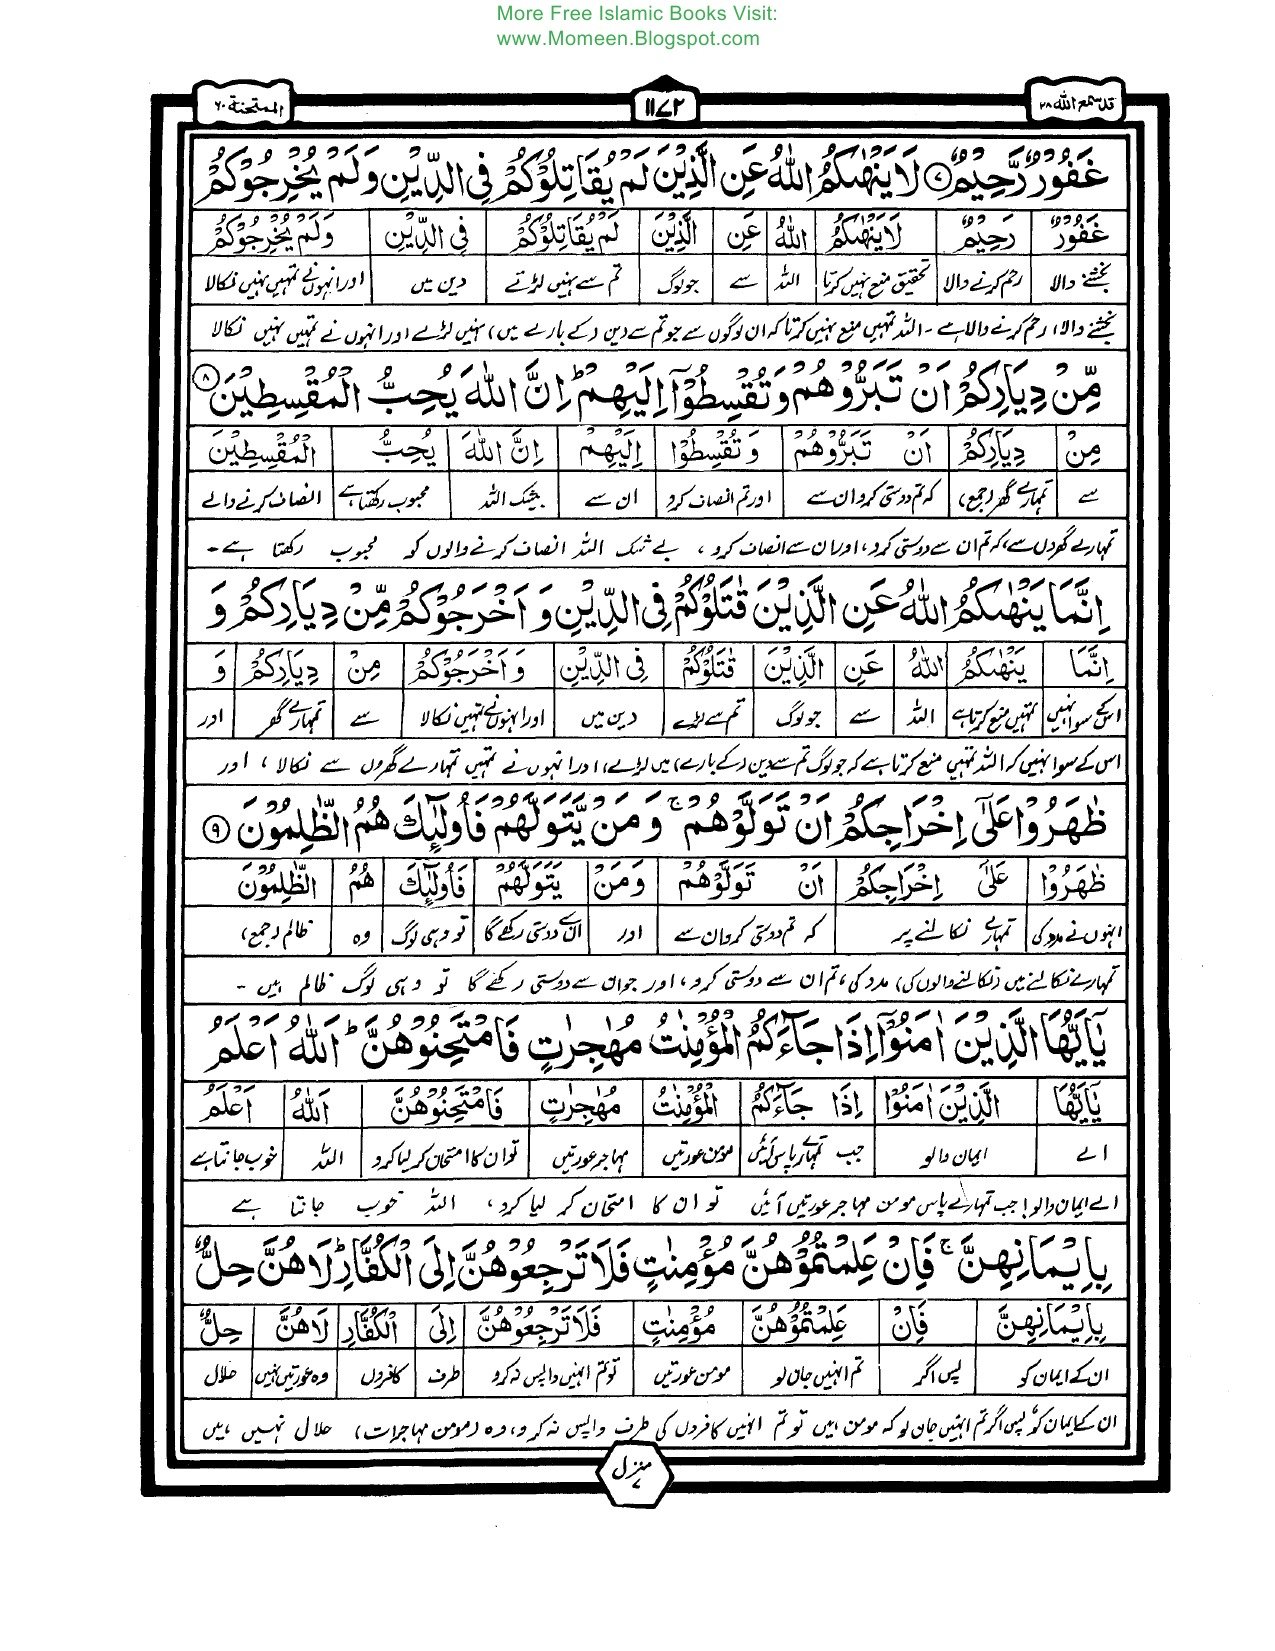 More Free Islamic Books Visit:
www.Momeen.Blogspot.com
قد سمع الله ۲۸ ۱۱۷۲ الممتحنة ۶۰
غَفُوْرٌ رَّحِيْمٌ ۷ لَا يَنْهٰىكُمُ اللّٰهُ عَنِ الَّذِيْنَ لَمْ يُقَاتِلُوْكُمْ فِي الدِّيْنِ وَلَمْ يُخْرِجُوْكُمْ
غَفُوْرٌ رَحِيْمٌ لَا يَنْهٰىكُمُ اللّٰهُ عَنِ الَّذِيْنَ لَمْ يُقَاتِلُوْكُمْ فِي الدِّيْنِ وَلَمْ يُخْرِجُوْكُمْ
بخشنے والا رحم کرنے والا تحقیق منع نہیں کرتا اللہ سے جو لوگ تم سے نہیں لڑتے دین میں اور انہوں نے تمہیں نہیں نکالا
بخشنے والا، رحم کرنے والا ہے ۔ اللہ تمہیں منع نہیں کرتا کہ ان لوگوں سے جو تم سے دین (کے بارے میں) نہیں لڑے اور انہوں نے تمہیں نہیں نکالا
مِّنْ دِيَارِكُمْ اَنْ تَبَرُّوْهُمْ وَتُقْسِطُوْٓا اِلَيْهِمْ ؕ اِنَّ اللّٰهَ يُحِبُّ الْمُقْسِطِيْنَ ۸
مِنْ دِيَارِكُمْ اَنْ تَبَرُّوْهُمْ وَتُقْسِطُوْا اِلَيْهِمْ اِنَّ اللّٰهَ يُحِبُّ الْمُقْسِطِيْنَ
سے تمہارے گھر (جمع) کہ تم دوستی کرو ان سے اور تم انصاف کرو ان سے بیشک اللہ محبوب رکھتا ہے انصاف کرنے والے
تمہارے گھروں سے، کہ تم ان سے دوستی کرو، اور ان سے انصاف کرو، بے شک اللہ انصاف کرنے والوں کو محبوب رکھتا ہے ۔
اِنَّمَا يَنْهٰىكُمُ اللّٰهُ عَنِ الَّذِيْنَ قٰتَلُوْكُمْ فِي الدِّيْنِ وَاَخْرَجُوْكُمْ مِّنْ دِيَارِكُمْ وَ
اِنَّمَا يَنْهٰىكُمُ اللّٰهُ عَنِ الَّذِيْنَ قٰتَلُوْكُمْ فِي الدِّيْنِ وَاَخْرَجُوْكُمْ مِنْ دِيَارِكُمْ وَ
اس کے سوا نہیں تمہیں منع کرتا ہے اللہ سے جو لوگ تم سے لڑے دین میں اور انہوں نے تمہیں نکالا سے تمہارے گھر اور
اس کے سوا نہیں کہ اللہ تمہیں منع کرتا ہے کہ جو لوگ تم سے دین (کے بارے) میں لڑے، اور انہوں نے تمہیں تمہارے گھروں سے نکالا، اور
ظٰهَرُوْا عَلٰٓى اِخْرَاجِكُمْ اَنْ تَوَلَّوْهُمْ ۚ وَمَنْ يَّتَوَلَّهُمْ فَاُولٰٓئِكَ هُمُ الظّٰلِمُوْنَ ۹
ظٰهَرُوْا عَلٰٓى اِخْرَاجِكُمْ اَنْ تَوَلَّوْهُمْ وَمَنْ يَتَوَلَّهُمْ فَاُولٰٓئِكَ هُمُ الظّٰلِمُوْنَ
انہوں نے مدد کی تمہارے نکالنے پر کہ تم دوستی کرو ان سے اور ان سے دوستی رکھے گا تو وہی لوگ وہ ظالم (جمع)
تمہارے نکالنے میں (نکالنے والوں کی) مدد کی، تم ان سے دوستی کرو، اور جو ان سے دوستی رکھے گا تو وہی لوگ ظالم ہیں ۔
يٰٓاَيُّهَا الَّذِيْنَ اٰمَنُوْٓا اِذَا جَآءَكُمُ الْمُؤْمِنٰتُ مُهٰجِرٰتٍ فَامْتَحِنُوْهُنَّ ؕ اَللّٰهُ اَعْلَمُ
يٰٓاَيُّهَا الَّذِيْنَ اٰمَنُوْٓا اِذَا جَآءَكُمُ الْمُؤْمِنٰتُ مُهٰجِرٰتٍ فَامْتَحِنُوْهُنَّ اَللّٰهُ اَعْلَمُ
اے ایمان والو جب تمہارے پاس آئیں مومن عورتیں مہاجر عورتیں تو ان کا امتحان کر لیا کرو اللہ خوب جانتا ہے
اے ایمان والو! جب تمہارے پاس مومن مہاجر عورتیں آئیں تو ان کا امتحان کر لیا کرو، اللہ خوب جانتا ہے
بِاِيْمَانِهِنَّ ۚ فَاِنْ عَلِمْتُمُوْهُنَّ مُؤْمِنٰتٍ فَلَا تَرْجِعُوْهُنَّ اِلَى الْكُفَّارِ ؕ لَا هُنَّ حِلٌّ
بِاِيْمَانِهِنَّ فَاِنْ عَلِمْتُمُوْهُنَّ مُؤْمِنٰتٍ فَلَا تَرْجِعُوْهُنَّ اِلَى الْكُفَّارِ لَا هُنَّ حِلٌّ
ان کے ایمان کو پس اگر تم انہیں جان لو مومن عورتیں تو تم انہیں واپس نہ کرو طرف کافروں وہ عورتیں نہیں حلال
ان کے ایمان کو، پس اگر تم انہیں جان لو کہ مومن ہیں تو تم انہیں کافروں کی طرف واپس نہ کرو، وہ (مومن مہاجرات) حلال نہیں ہیں
منزل ۷